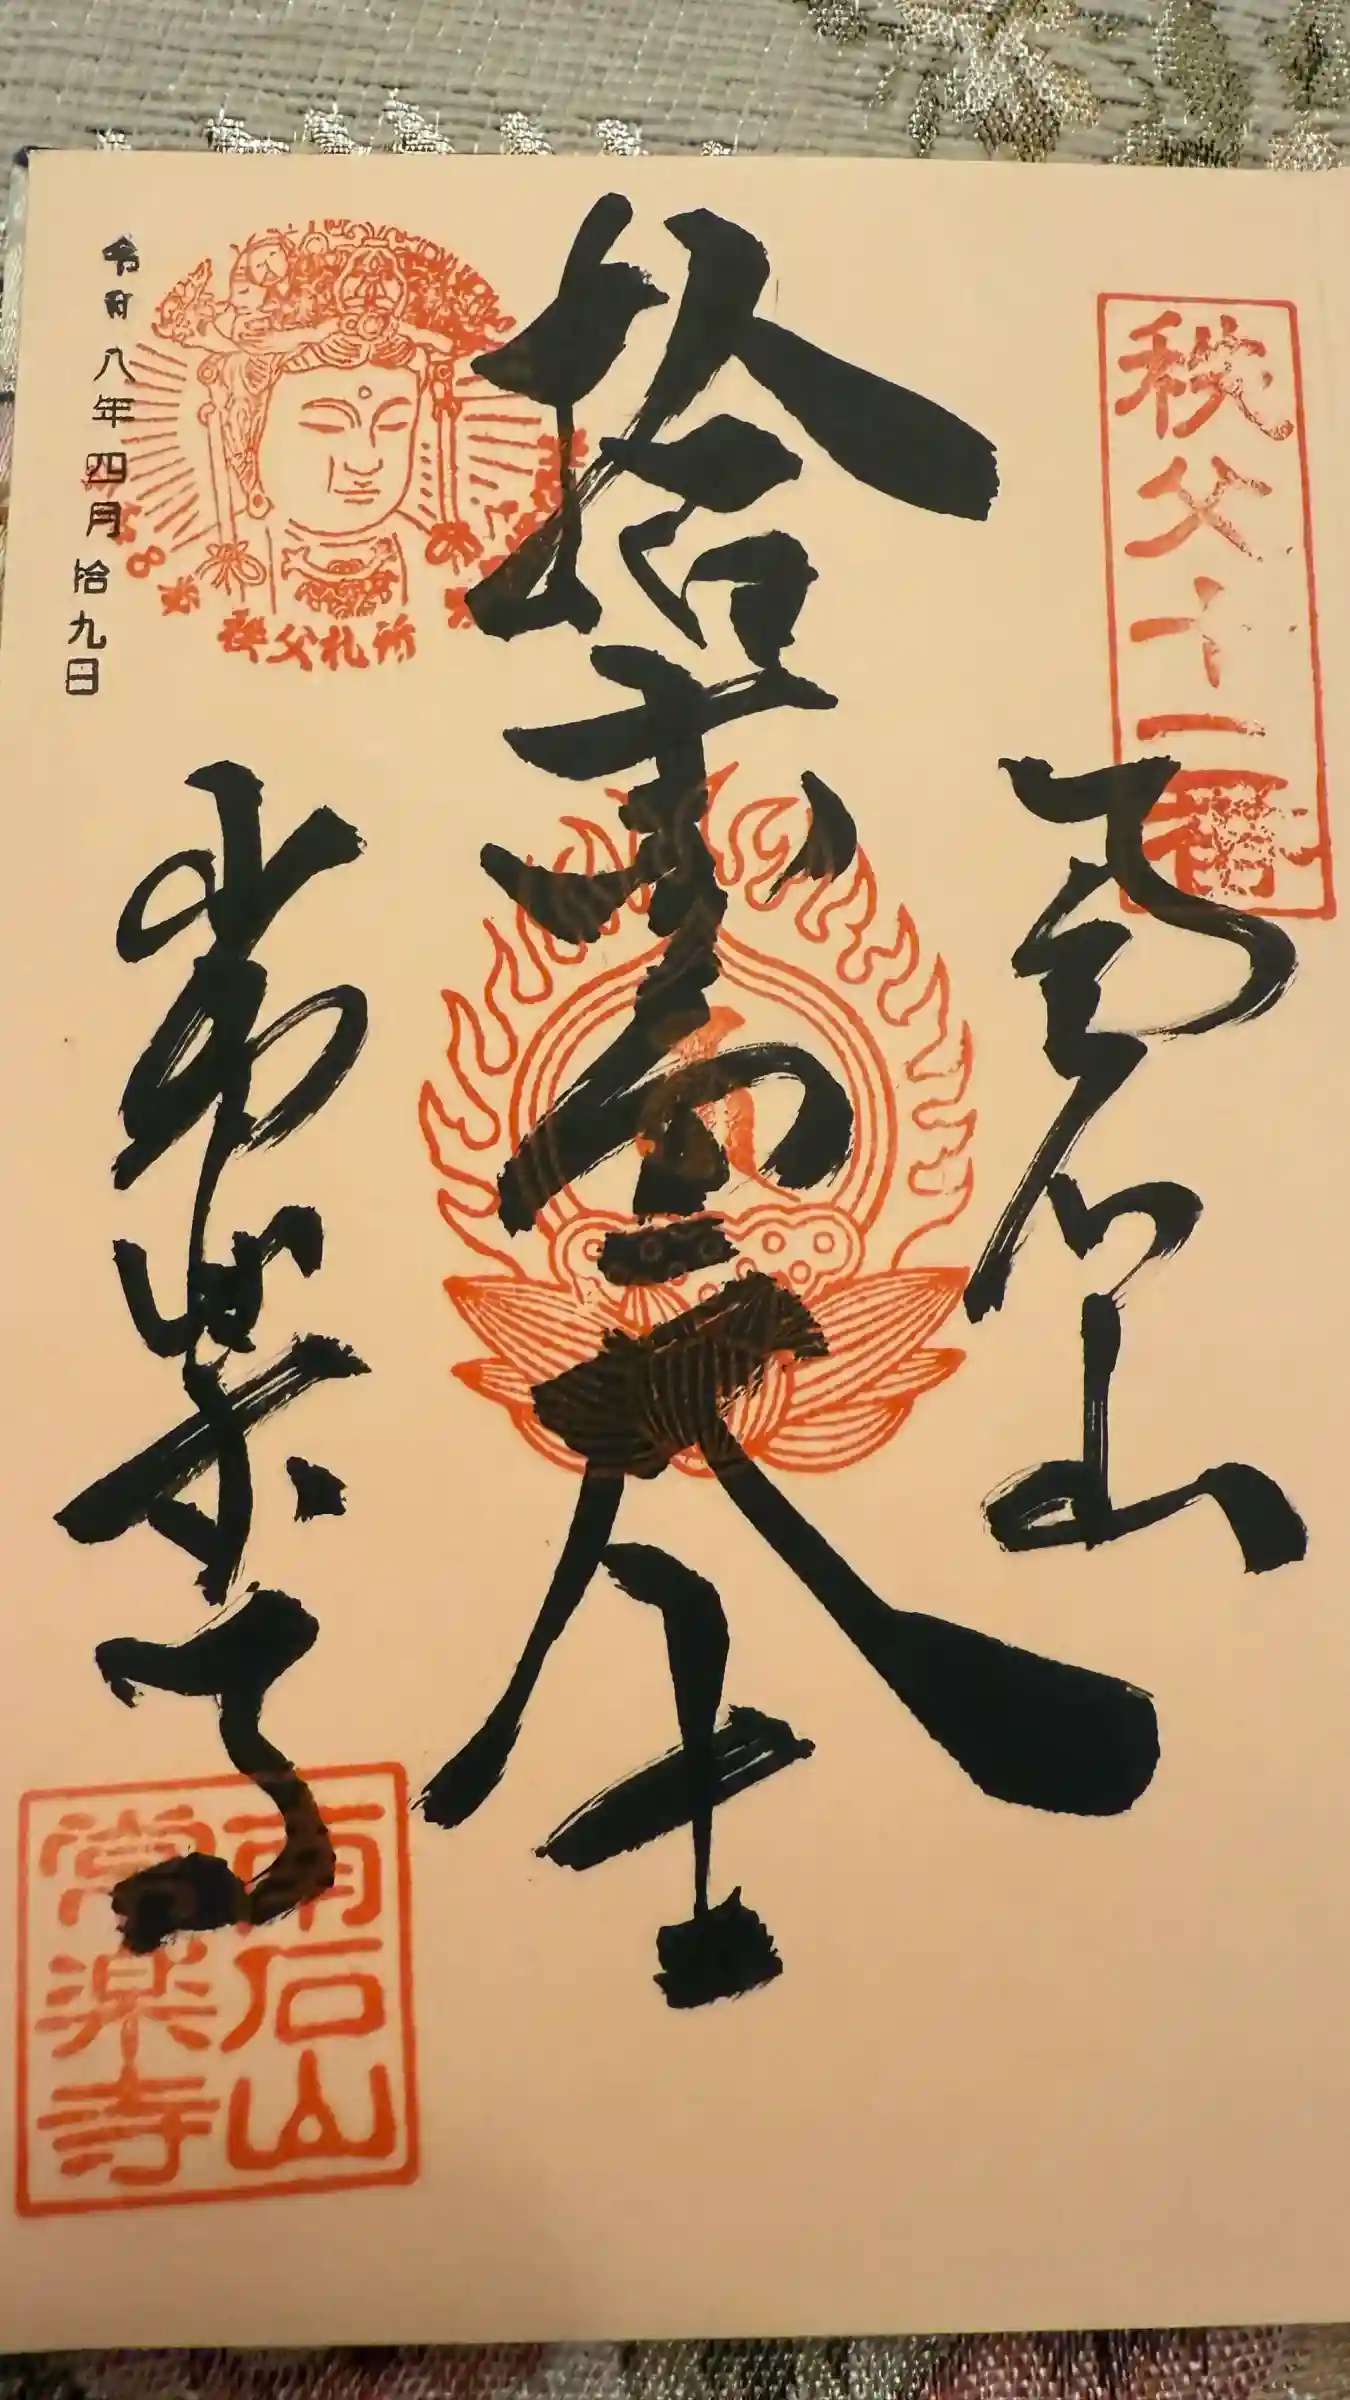 秩父十一番
南石山
拾壱面大士
令和八年四月拾九日
秩父札所
常楽寺
南石山
常楽寺